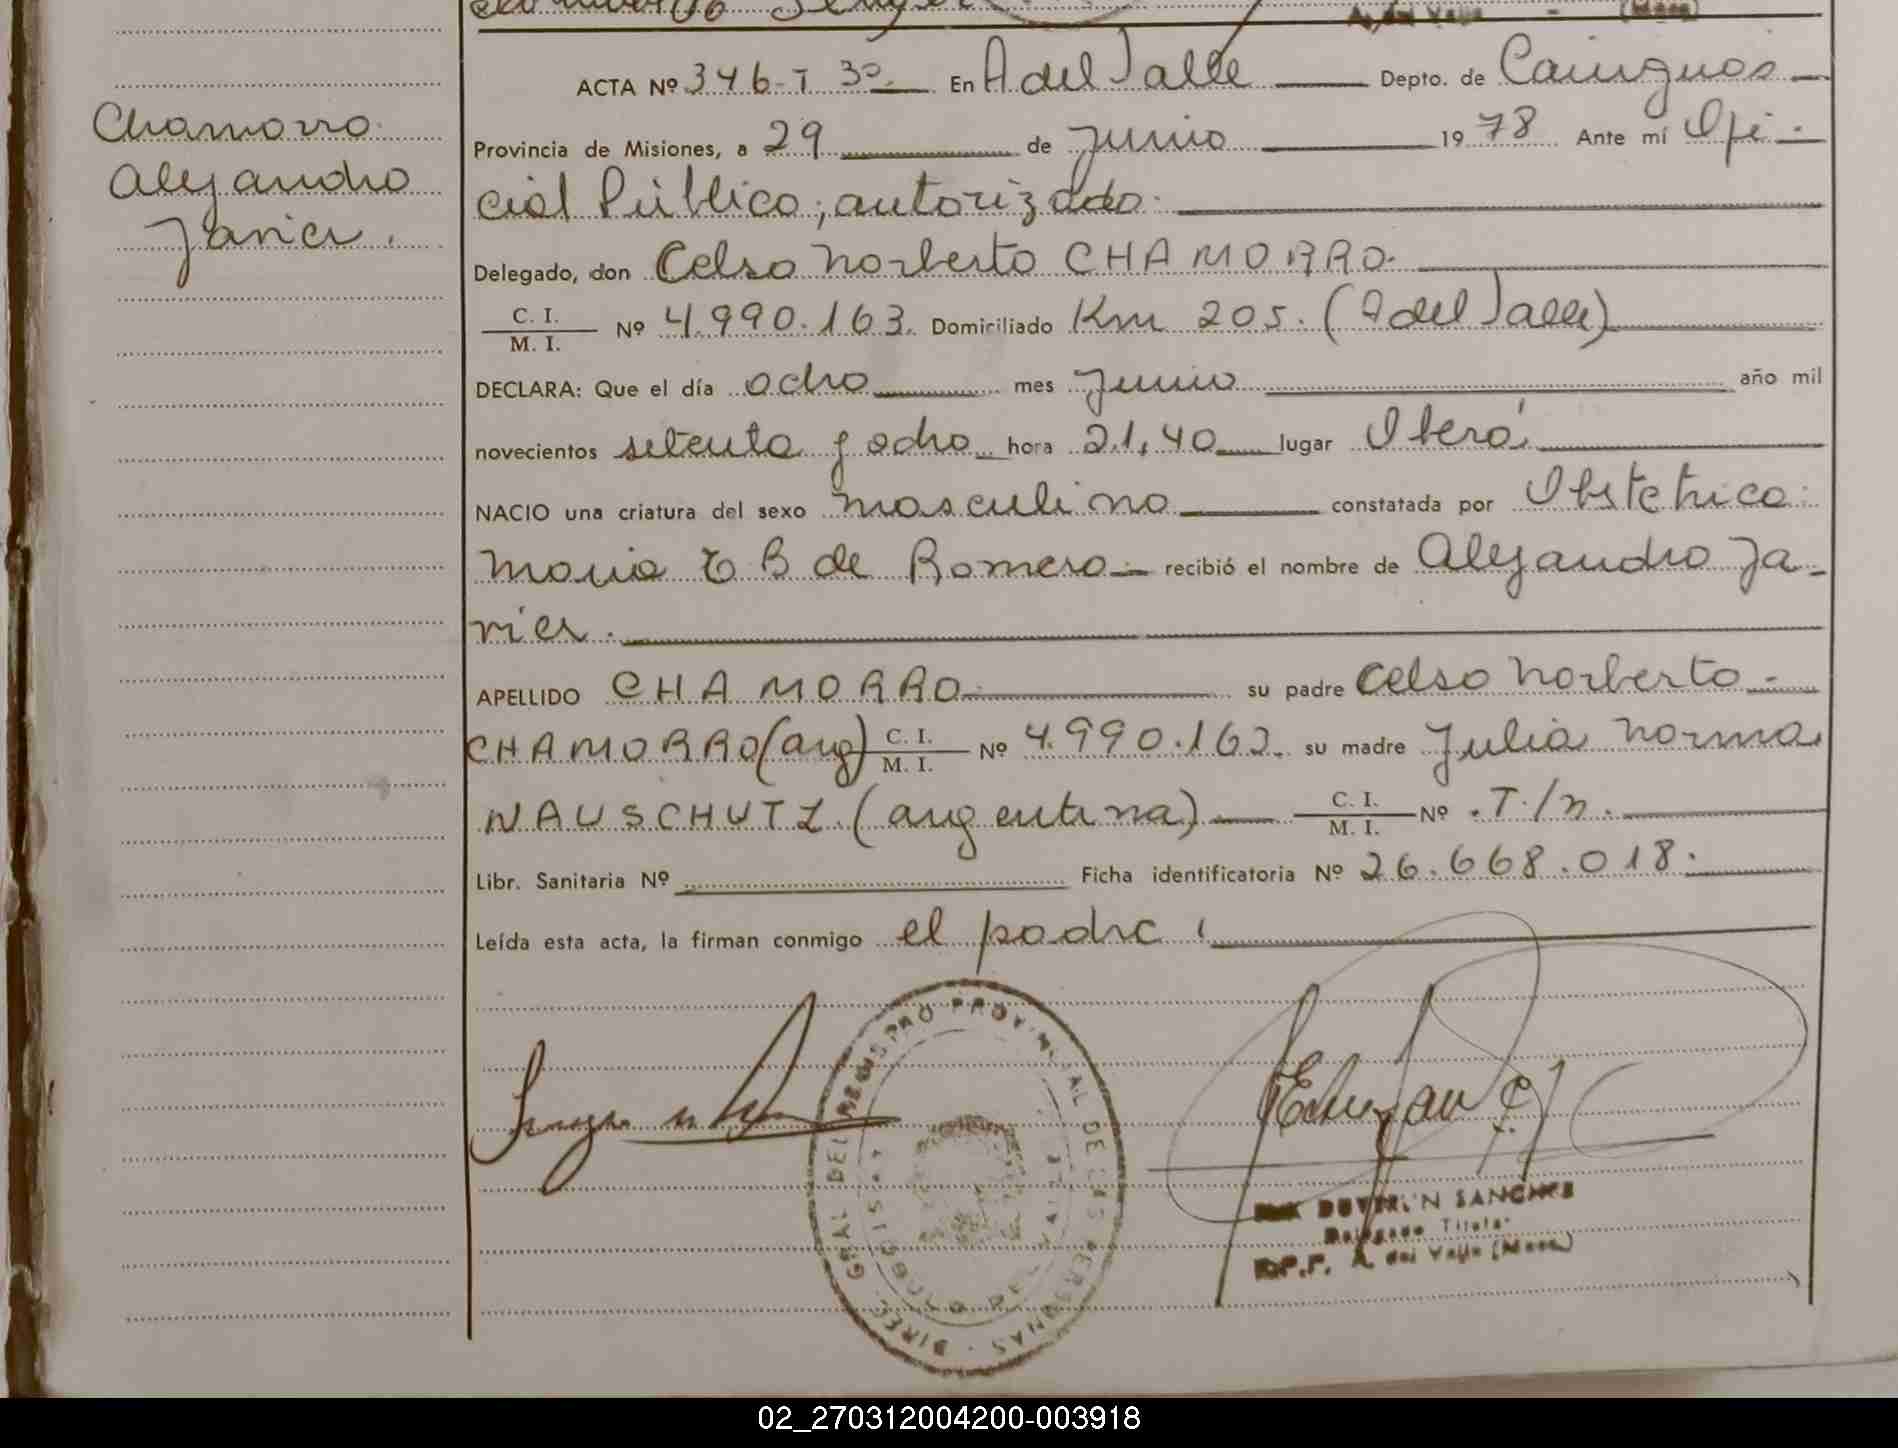 A. del Valle - (Mnes)
ACTA Nº 346-T 3º. En A del Valle Depto. de Cainguas
Chamorro
Alejandro
Javier.
Provincia de Misiones, a 29 de Junio 1978 Ante mí Ofi-
cial Público, autorizado.
Delegado, don Celso Norberto CHAMORRO.
C. I.
M. I. Nº 4.990.163. Domiciliado Km 205. (A del Valle)
DECLARA: Que el día ocho mes Junio año mil
novecientos setenta y ocho hora 21,40 lugar Oberá
NACIO una criatura del sexo masculino constatada por Obstetrica
Maria E B de Romero recibió el nombre de Alejandro Ja-
vier.
APELLIDO CHAMORRO su padre Celso Norberto
CHAMORRO (arg) C. I.
M. I. Nº 4.990.163. su madre Julia Norma
NAUSCHUTZ (argentina) C. I.
M. I. Nº T/n.
Libr. Sanitaria Nº Ficha identificatoria Nº 26.668.018.
Leída esta acta, la firman conmigo el padre
DIREC. GRAL DEL REGISTRO PROVINCIAL DE LAS PERSONAS
SANCHES
Delegado Titular
A. del Valle (Mnes)
02_270312004200-003918